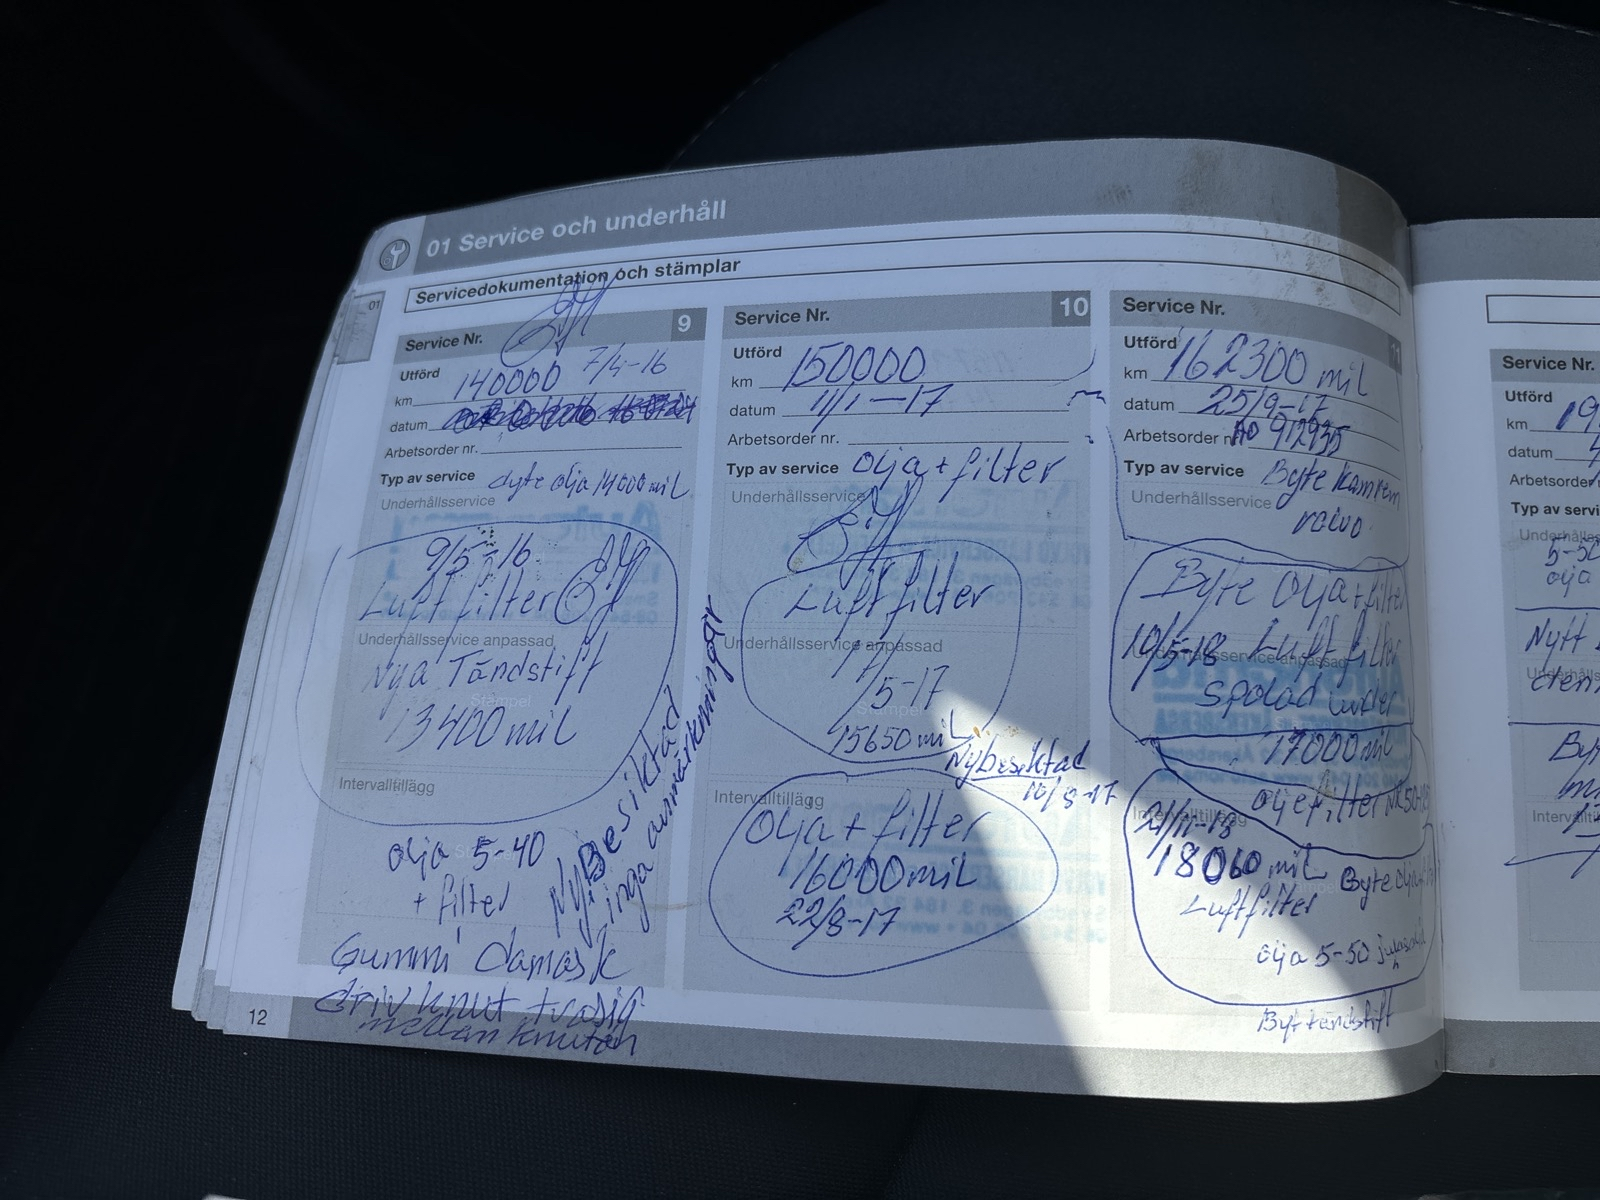 01 Service och underhåll
Servicedokumentation och stämplar
01
Service Nr. 9
Utförd
140000 7/4-16
km
datum
Arbetsorder nr.
Typ av service byte olja 14000 mil
Underhållsservice
9/5-16
Luftfilter
Underhållsservice anpassad
Nya Tändstift
Stämpel
13400 mil
Intervalltillägg
olja 5-40
+ filter
NyBesiktad
inga anmärkningar
Gummi damask
drivknut trasig
mellan knuten
12
Service Nr. 10
Utförd
km 150000
datum 11/1-17
Arbetsorder nr.
Typ av service olja + filter
Underhållsservice
Luftfilter
Underhållsservice anpassad
17/5-17
Stämpel
15650 mil
Nybesiktad
10/8-17
Intervalltillägg
olja + filter
16000 mil
22/8-17
Service Nr. 11
Utförd
km 162300 mil
datum 25/9-17
Arbetsorder nr. AO 912935
Typ av service Byte kamrem
Underhållsservice volvo
Byte olja + filter
10/5-18 Luftfilter
Underhållsservice anpassad
spolad under
17000 mil
oljefilter
Intervalltillägg
21/11-18
18060 mil Byte olja
Luftfilter
olja 5-50
Byt tändstift
Service Nr.
Utförd
km 19
datum
Arbetsorder
Typ av servi
Underhålls
5-50
olja
Nytt
Underhålls
Byt
Intervallti